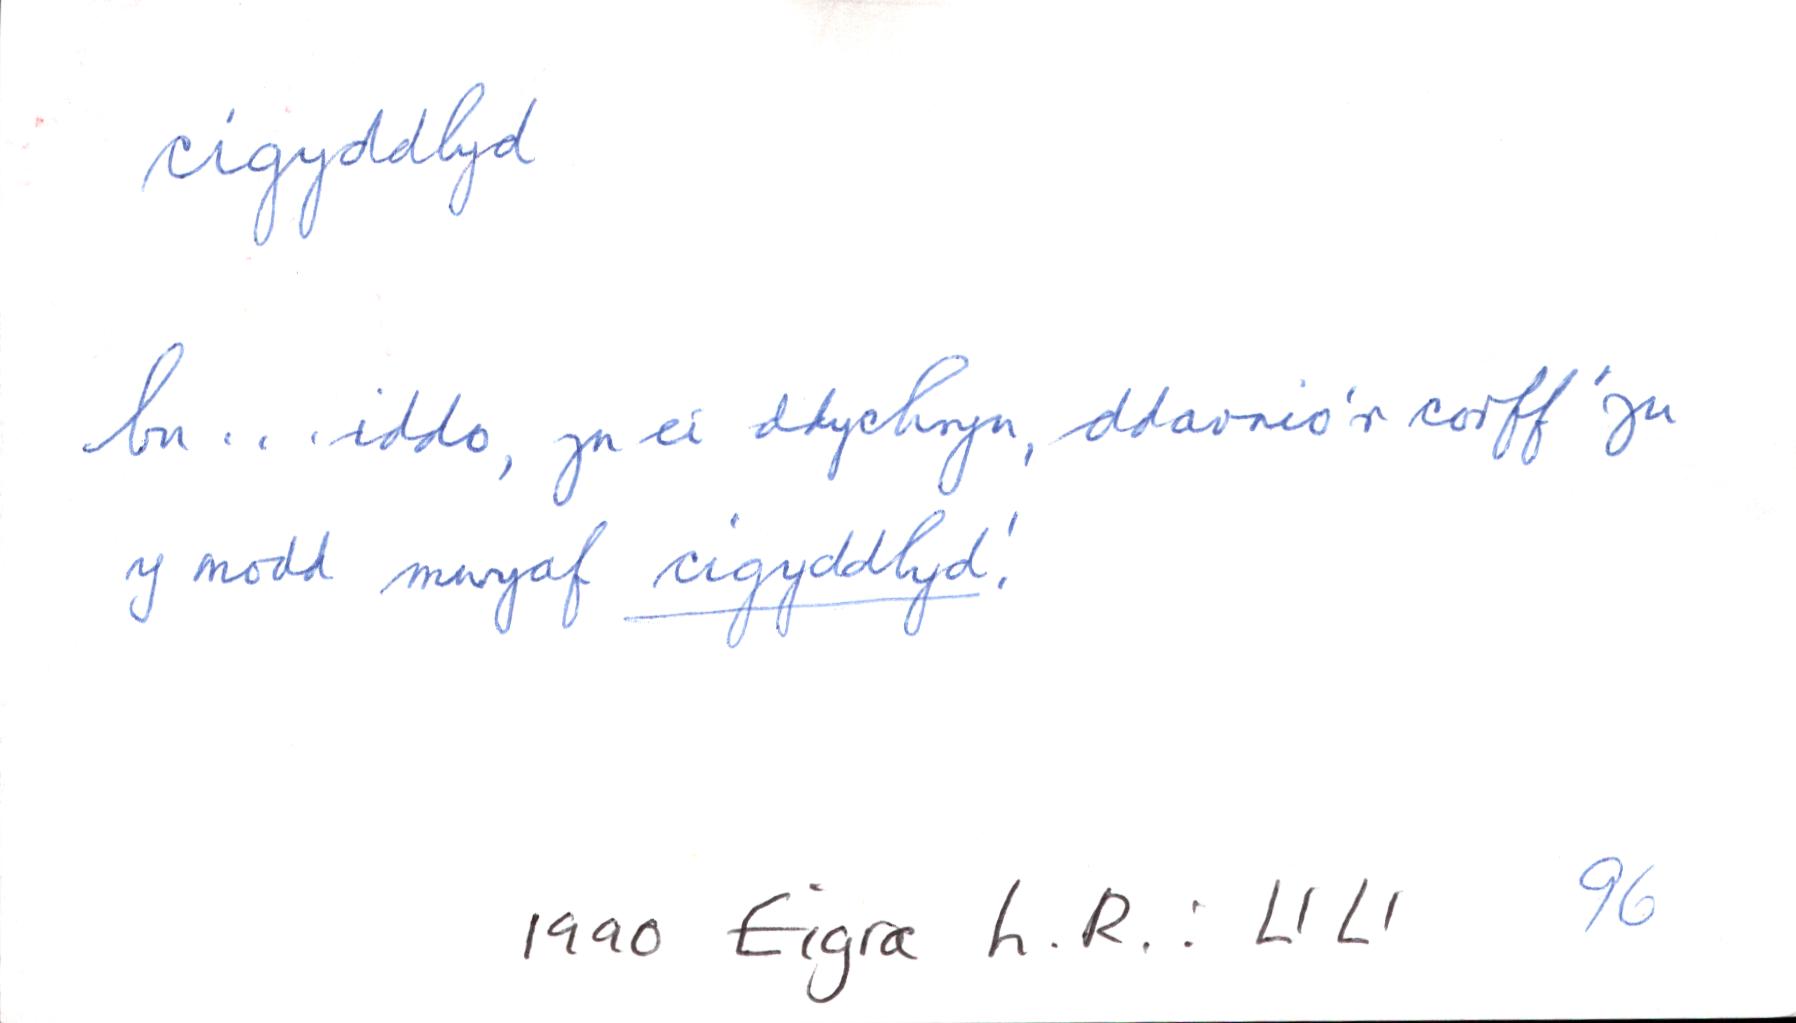 cigyddlyd
bu . . . iddo, yn ei ddychryn, ddarnio'r corff 'yn
y modd mwyaf cigyddlyd'.
1990 Eigra L.R.: Ll Ll 96